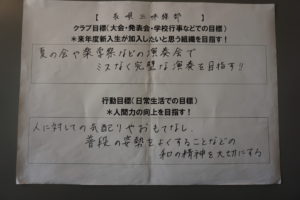 【 長 唄 三 味 線 部 】
クラブ目標(大会・発表会・学校行事などでの目標)
*来年度新入生が加入したいと思う組織を目指す!
夏の会や楽学祭などの演奏会で
ミスなく完璧な演奏を目指す!!
行動目標(日常生活での目標)
*人間力の向上を目指す!
人に対しての気配りやおもてなし、
普段の姿勢をよくすることなどの
和の精神を大切にする